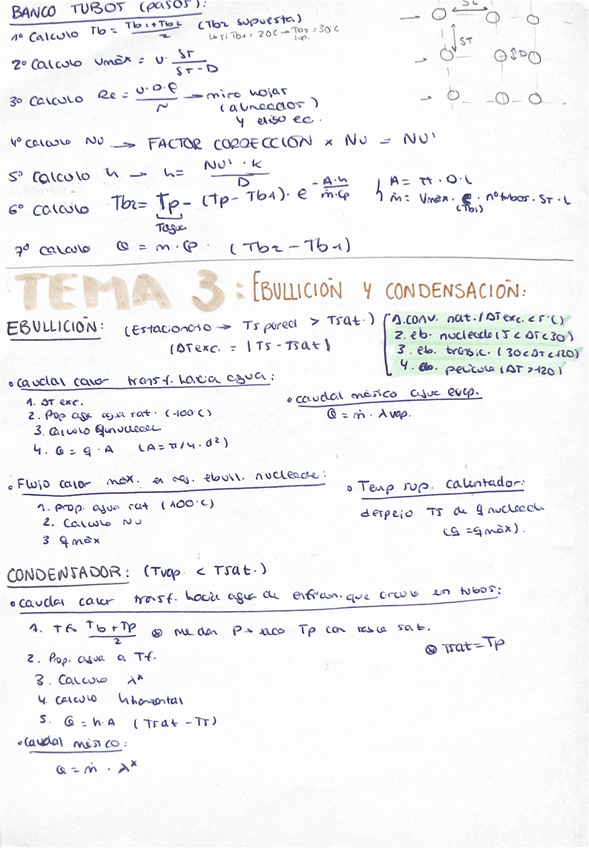 BANCO TUBOS (pasos):
1º Calculo Tb = Tb1+Tb2 / 2 (Tb2 supuesta)
↳ si Tb1 = 20ºC → Tb2 sup. = 30ºC
2º Calculo Vmàx = U · ST / ST - D
3º Calculo Re = U·D·ρ / N → miro hojas
(alineados)
y elijo ec.
4º calculo NU → FACTOR CORRECCION × NU = NU'
5º Calculo h → h = NU' · K / D
6º calculo Tb2 = Tp - (Tp - Tb1) · e^(-A·h / ṁ·Cp)
Tagua
A = π · D · L
ṁ = Vmax · ρ · nº tubos · ST · L
(Tb1)
7º calculo Q = m · Cp · (Tb2 - Tb1)
SL
ST
D
TEMA 3: EBULLICIÓN Y CONDENSACIÓN:
EBULLICIÓN: (Estacionario → Ts pared > Tsat.)
(ΔT exc. = |Ts - Tsat|)
1. conv. nat. (ΔT exc. < 5ºC)
2. eb. nucleada (5 < ΔT < 30)
3. eb. transic. (30 < ΔT < 120)
4. eb. pelicula (ΔT > 120)
• caudal calor transf. hacia agua:
1. ΔT exc.
2. Prop agua sat. (100ºC)
3. Calculo q nucleada
4. Q = q · A (A = π/4 · d²)
• caudal màsico agua evap.
Q = ṁ · λvap.
• Flujo calor max. en reg. ebull. nucleada:
1. prop. agua sat (100ºC)
2. Calculo NU
3. q màx
• Temp sup. calentador:
despejo TS de q nucleada
(q = q màx).
CONDENSADOR: (Tvap. < Tsat.)
• caudal calor transf. hacia agua de enfriam. que circula en tubos:
1. Tf = Tb + Tp / 2 ⊛ me dan P → saco Tp con tabla sat.
⊛ Tsat = Tp
2. Prop. agua a Tf.
3. Calculo λ*
4. calculo h horizontal
5. Q = h · A (Tsat - Ts)
• caudal màsico:
Q = ṁ · λ*